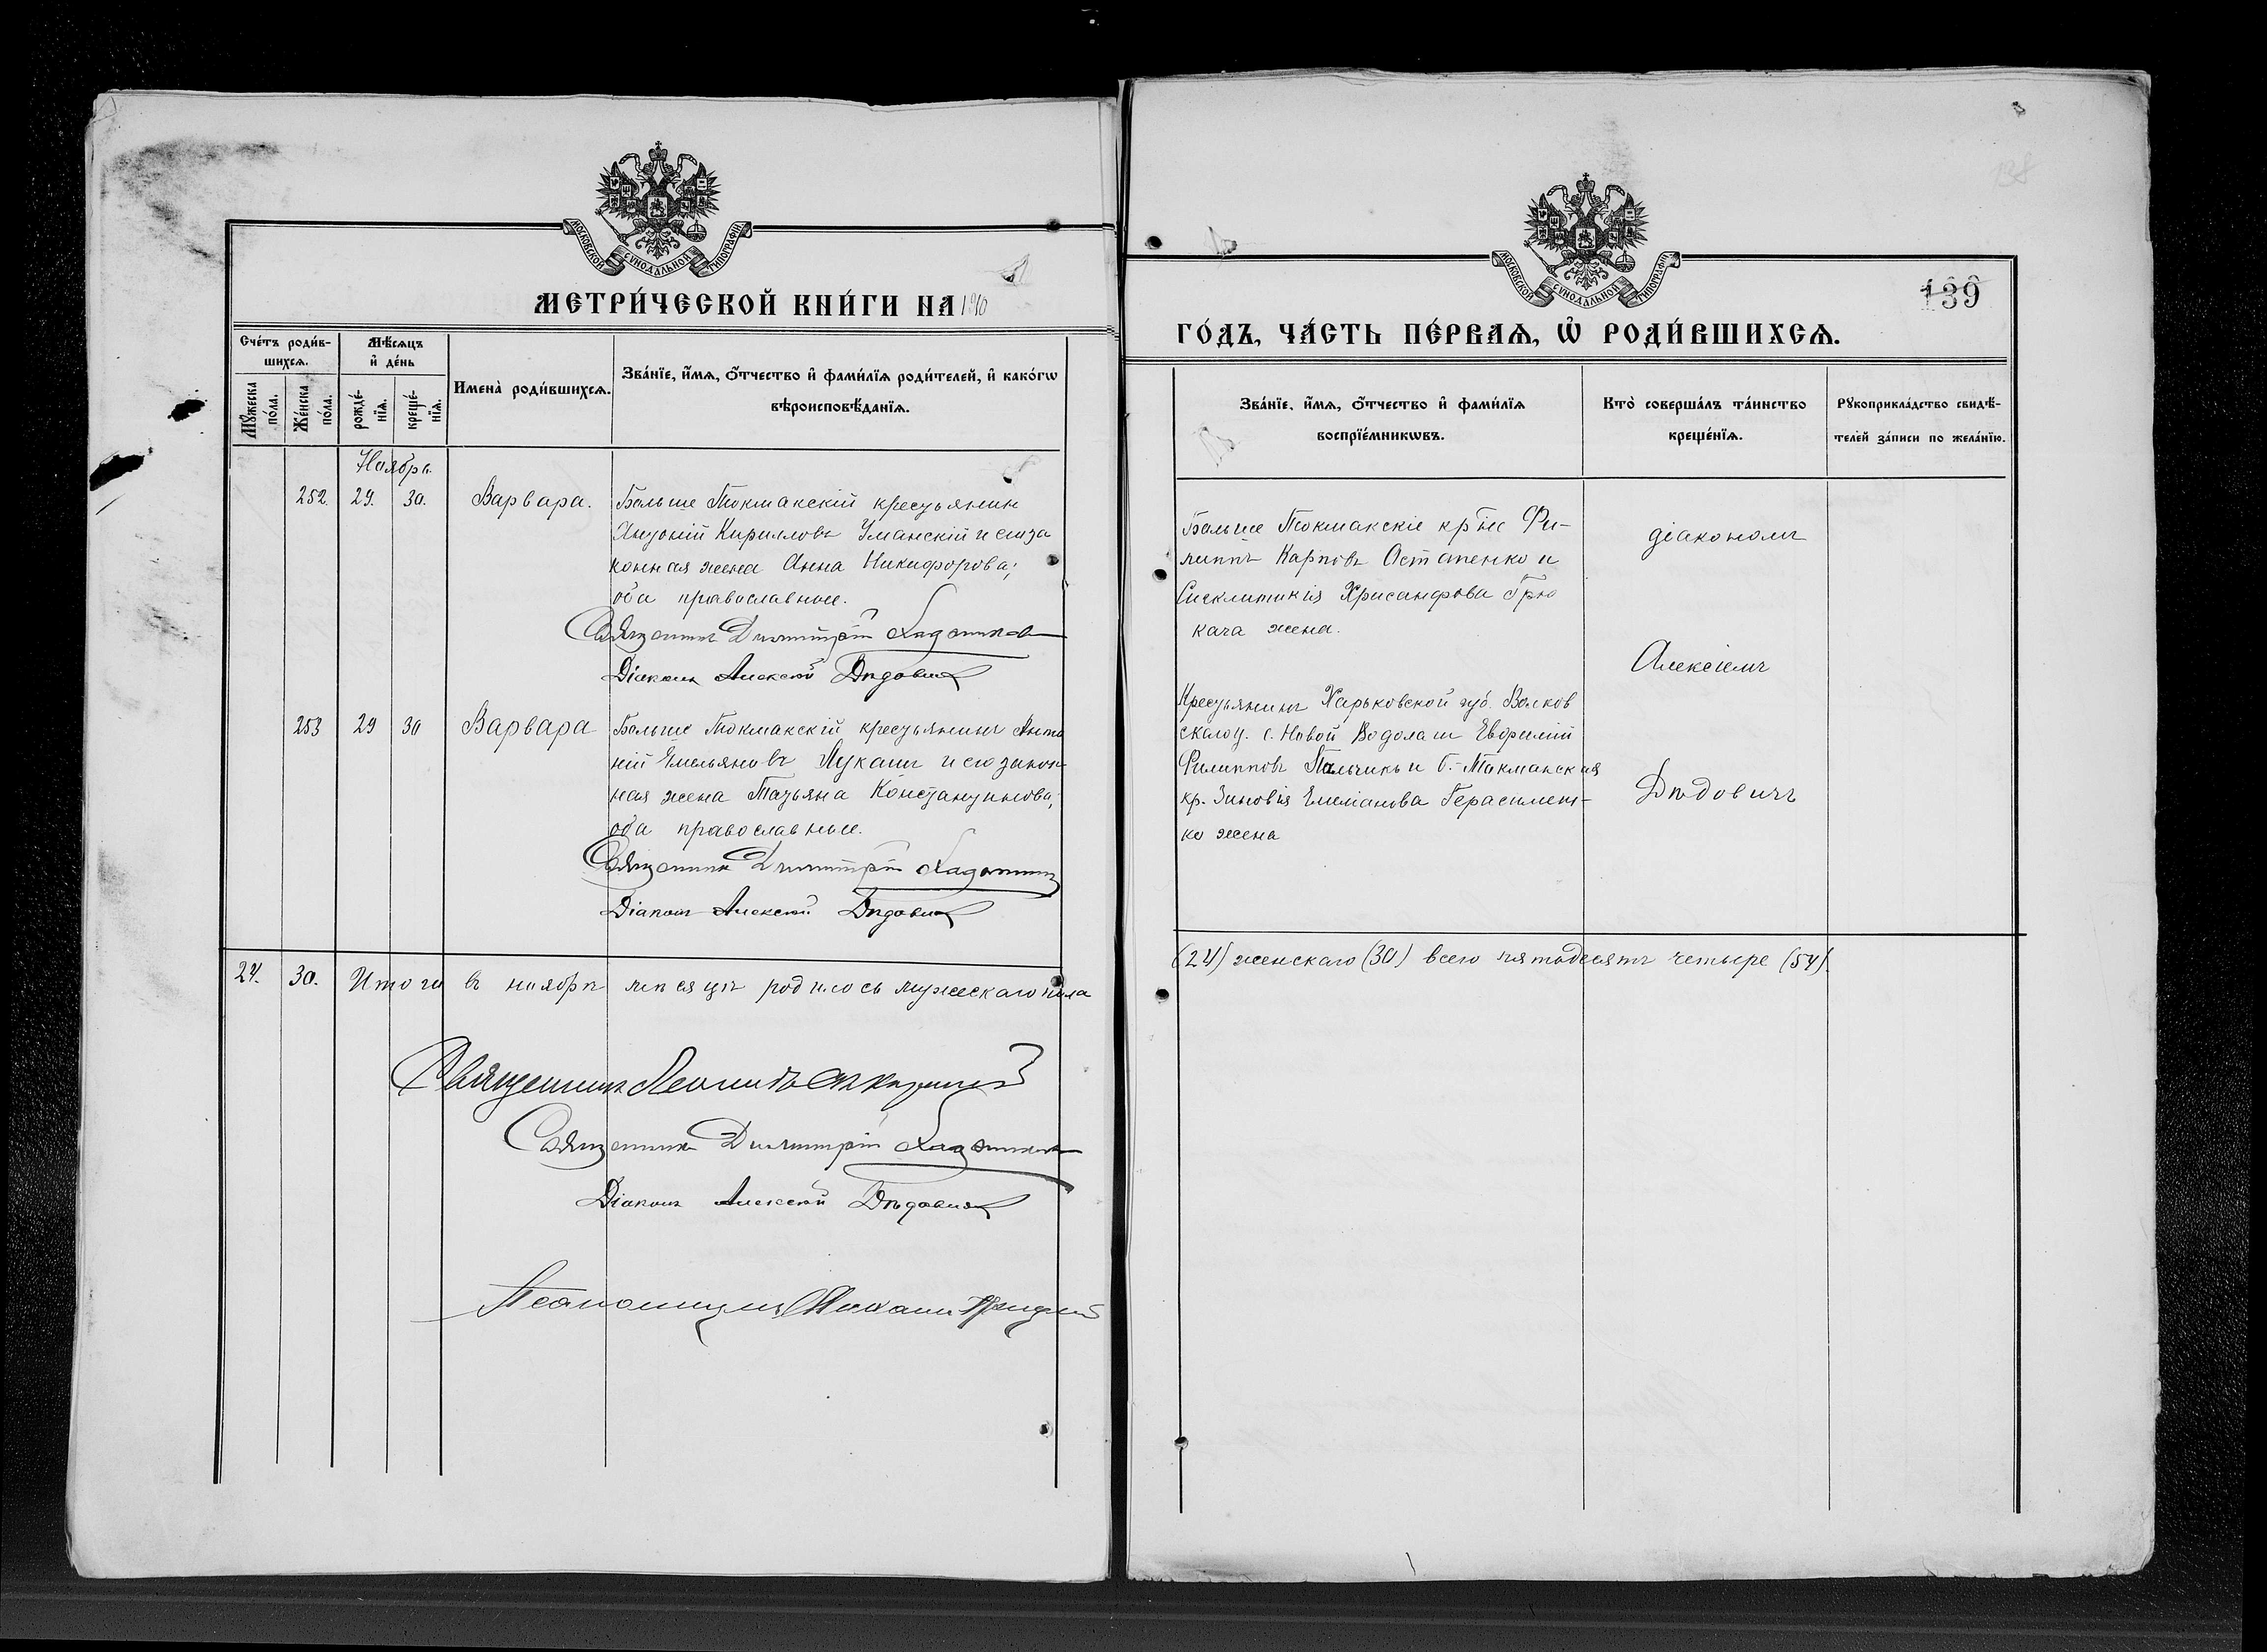 МОСКОВСКОЙ СѴНОДАЛЬНОЙ ТИПОГРАФІИ
МЕТРИ́ЧЕСКОЙ КНИ́ГИ НА 1910
Сче́тъ роди́в-
шихсѧ.
Мѣ́сѧцъ
и҆ де́нь
Мꙋ́жеска
по́ла.
Же́нска
по́ла.
рожде́-
нїѧ.
креще́-
нїѧ.
Имена̀ роди́вшихсѧ.
Зва́нїе, и҆́мѧ, ѻ҆́тчество и҆ фами́лїѧ роди́телей, и҆ како́гѡ
вѣроисповѣ́данїѧ.
Ноябрь
252. 29. 30. Варвара. Больше Токмакскій крестьянин
Антоній Кирилловъ Уманскій и его за
конная жена Анна Никифорова;
оба православные.
Священникъ Димитрій
Діаконъ Алексѣй Дѣдовичъ
253 29 30 Варвара Больше Токмакскій крестьянинъ Анто
ній Емельяновъ Лукаш и его закон-
ная жена Татьяна Константинова;
оба православные.
Священникъ Димитрій
Діаконъ Алексѣй Дѣдовичъ
24. 30. Итого въ ноябрѣ мѣсяцѣ родилось мужескаго пола
Священникъ Леонидъ
Священникъ Димитрій
Діаконъ Алексѣй Дѣдовичъ
Псаломщикъ
МОСКОВСКОЙ СѴНОДАЛЬНОЙ ТИПОГРАФІИ
138
139
ГО́ДЪ, ЧА́СТЬ ПЕ́РВАѦ, Ѡ҆ РОДИ́ВШИХСѦ.
Зва́нїе, и҆́мѧ, ѻ҆́тчество и҆ фами́лїѧ
воспрїе́мникѡвъ.
Кто̀ соверша́лъ та́инство
креще́нїѧ.
Рꙋкоприкла́дство свидѣ́-
телей за́писи по жела́нїю.
Больше Токмакскіе кр҃не Фи-
липпъ Карповъ Остапенко и
Сиклитикія Хрисанфова Грю
кача жена.
діакономъ
Алексіемъ
Крестьянинъ Харьковской губ. Валков
скаго у. с. Новой Водолаги Евфимій
Филипповъ Пальчикъ и Б.-Токмакская
кр. Зиновія Емеліанова Герасимен-
ко жена
Дѣдовичъ
(24) женскаго (30) всего пятьдесятъ четыре (54).